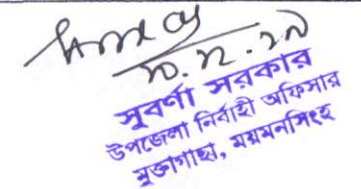 সুবর্ণা সরকার
উপজেলা নির্বাহী অফিসার
মুক্তাগাছা, ময়মনসিংহ